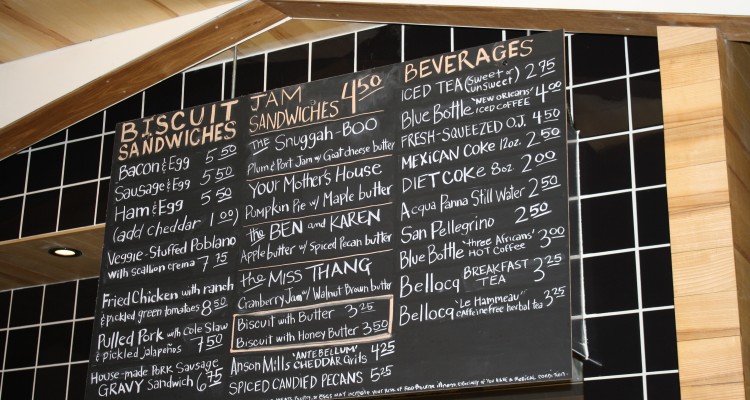 BISCUIT
SANDWICHES
Bacon & Egg 5.50
Sausage & Egg 5.50
Ham & Egg 5.50
(add cheddar 1.00)
Veggie-Stuffed Poblano
with scallion crema 7.75
Fried Chicken with ranch
& pickled green tomatoes 8.50
Pulled Pork with Cole Slaw
& pickled jalapeños 7.50
House-made Pork Sausage
GRAVY Sandwich 6.75
JAM
SANDWICHES 4.50
THE Snuggah-Boo
Plum & Port Jam w/ Goat cheese butter
Your Mother's House
Pumpkin Pie w/ Maple butter
the BEN and KAREN
Apple butter w/ Spiced Pecan butter
the MISS THANG
Cranberry Jam w/ Walnut Brown butter
Biscuit with Butter 3.25
Biscuit with Honey Butter 3.50
Anson Mills "ANTEBELLUM" CHEDDAR Grits 4.25
SPICED CANDIED PECANS 5.25
BEVERAGES
ICED TEA (Sweet or unsweet) 2.75
Blue Bottle "NEW ORLEANS" ICED COFFEE 4.00
FRESH-SQUEEZED O.J. 4.50
MEXICAN COKE 12oz. 2.50
DIET COKE 8oz. 2.00
Acqua Panna Still Water 2.50
San Pellegrino 2.50
Blue Bottle "three Africans" HOT COFFEE 3.00
Bellocq BREAKFAST TEA 3.25
Bellocq "Le Hammeau" caffeine free herbal tea 3.25
EGGS MAY increase your Risk of Food Bourne illness, especially if You HAVE A Medical condition.